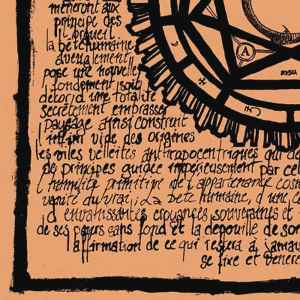 mèneront aux
principe des
l'orgueil
la bête humaine
aveuglement
pose une nouvelle
fondement soit
décor d'une totalité
secrètement embrassa
paysage ainsi construit
vide des origines
les viles velléités anthropocentriques qui de
de principes guidée impérieusement par cel
l'humilité primitive de l'appartenance cosm
vérité du vrai, la bête humaine, d'une
d'envahissantes croyances souverains et
de ses peurs sans fond et la dépouille de son
affirmation de ce qui restera à jamais
se fixe et vénère
A